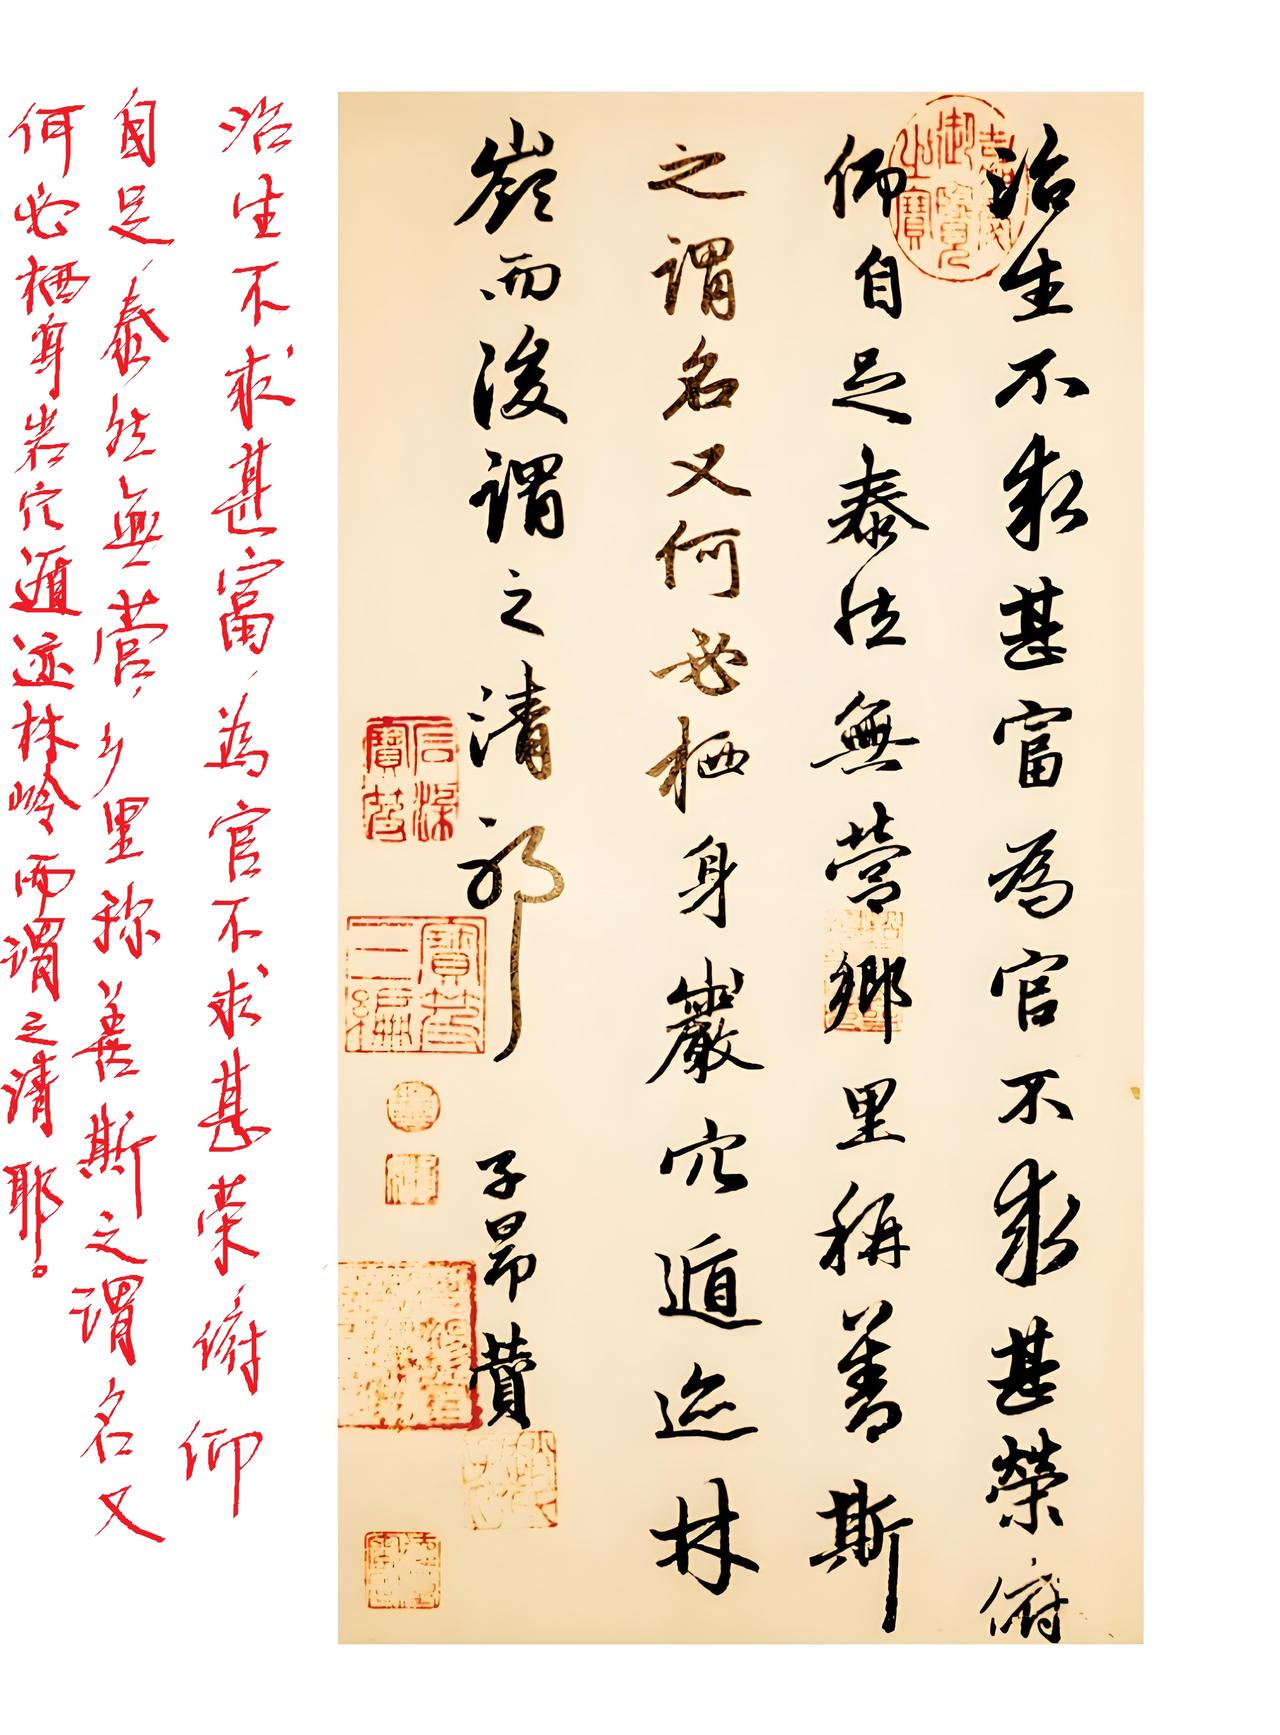 治生不求甚富為官不求甚榮俯
仰自足泰然無營鄉里稱善斯
之謂名又何必栖身巖穴遁迹林
嶺而後謂之清耶
子昂贊
嘉慶御覽之寶
石渠寶笈
寶笈三編
治生不求甚富，為官不求甚荣俯仰
自足，泰然無营，乡里称善斯之谓名又
何必栖身岩穴遁迹林岭而谓之清耶。